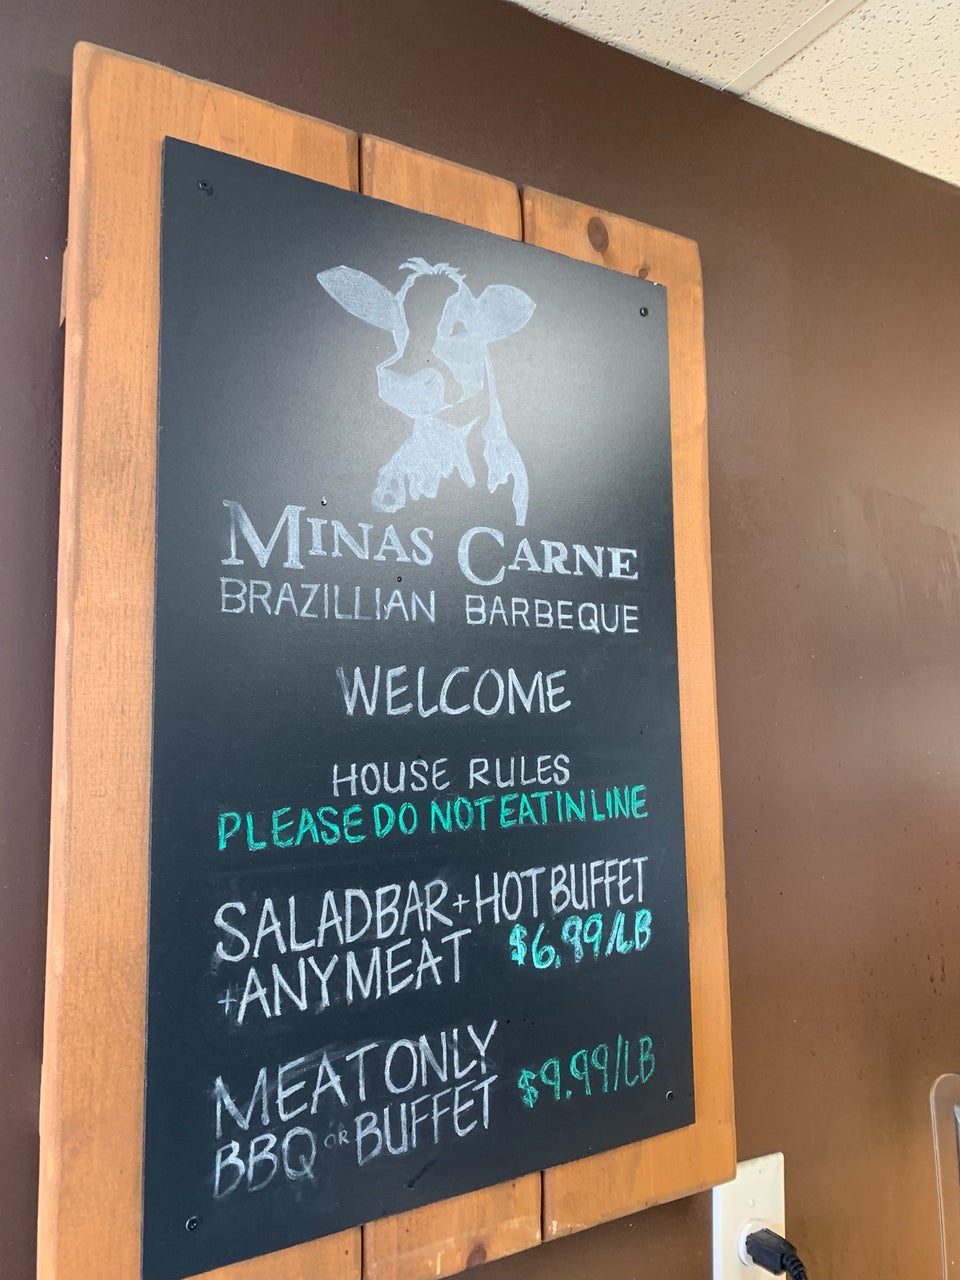 MINAS CARNE
BRAZILLIAN BARBEQUE
WELCOME
HOUSE RULES
PLEASE DO NOT EAT IN LINE
SALADBAR + HOT BUFFET
+ ANY MEAT $6.99/LB
MEAT ONLY
BBQ OR BUFFET $9.99/LB